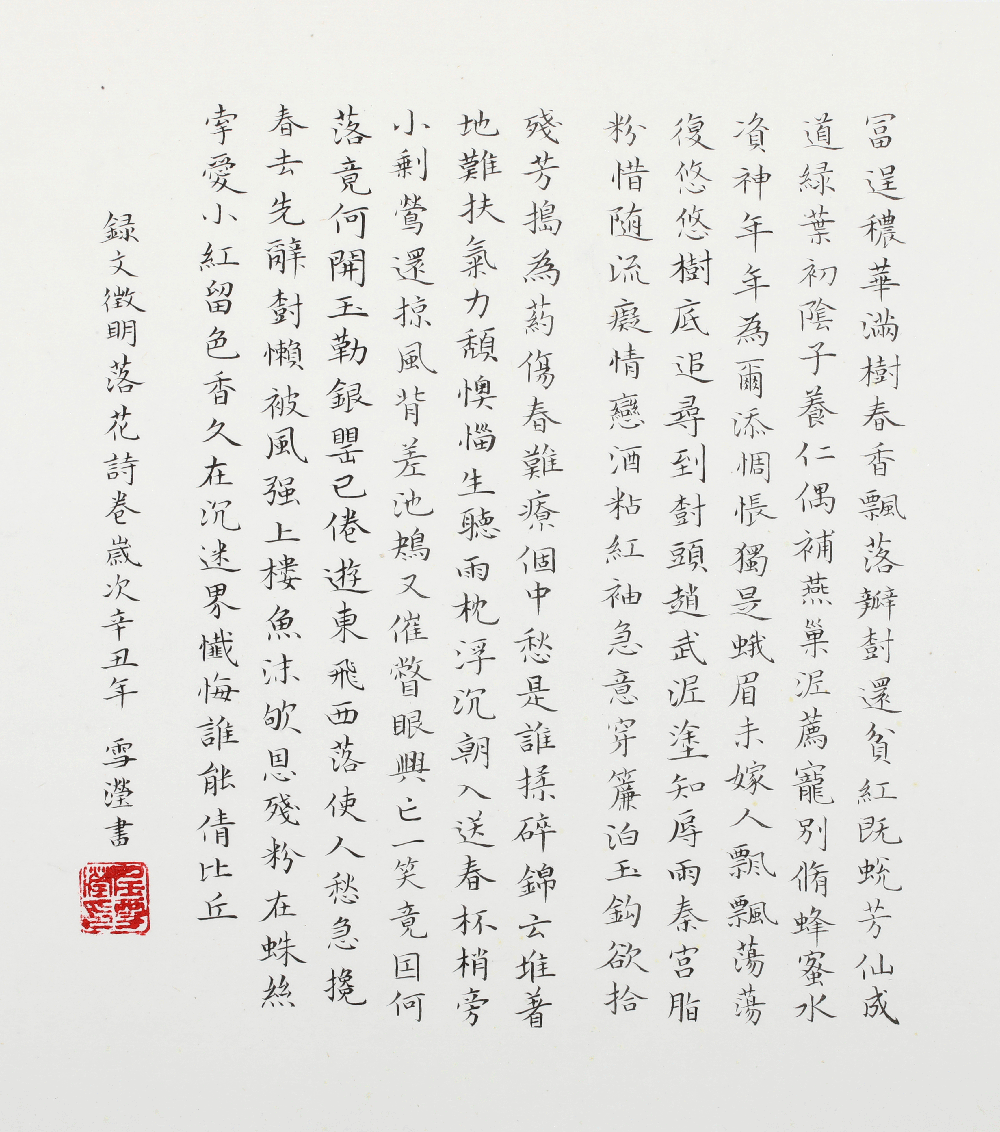 富逞穠華滿樹春香飄落瓣樹還貧紅既蛻芳仙成
道綠葉初陰子養仁偶補燕巢泥薦寵別脩蜂蜜水
資神年年為爾添惆悵獨是蛾眉未嫁人飄飄蕩蕩
復悠悠樹底追尋到樹頭趙武泥塗知辱雨秦宮脂
粉惜隨流癡情戀酒粘紅袖急意穿簾泊玉鈎欲拾
殘芳搗為药傷春難療個中愁是誰揉碎錦云堆著
地難扶氣力頹懊惱生聽雨枕浮沉朝入送春杯梢旁
小剩鶯還掠風背差池鴂又催瞥眼興亡一笑竟因何
落竟何開玉勒銀罌已倦遊東飛西落使人愁急攙
春去先辭樹懶被風强上樓魚沫欨恩殘粉在蛛絲
牽愛小紅留色香久在沉迷界懺悔誰能倩比丘
録文徵明落花詩卷歲次辛丑年 雪瀅書